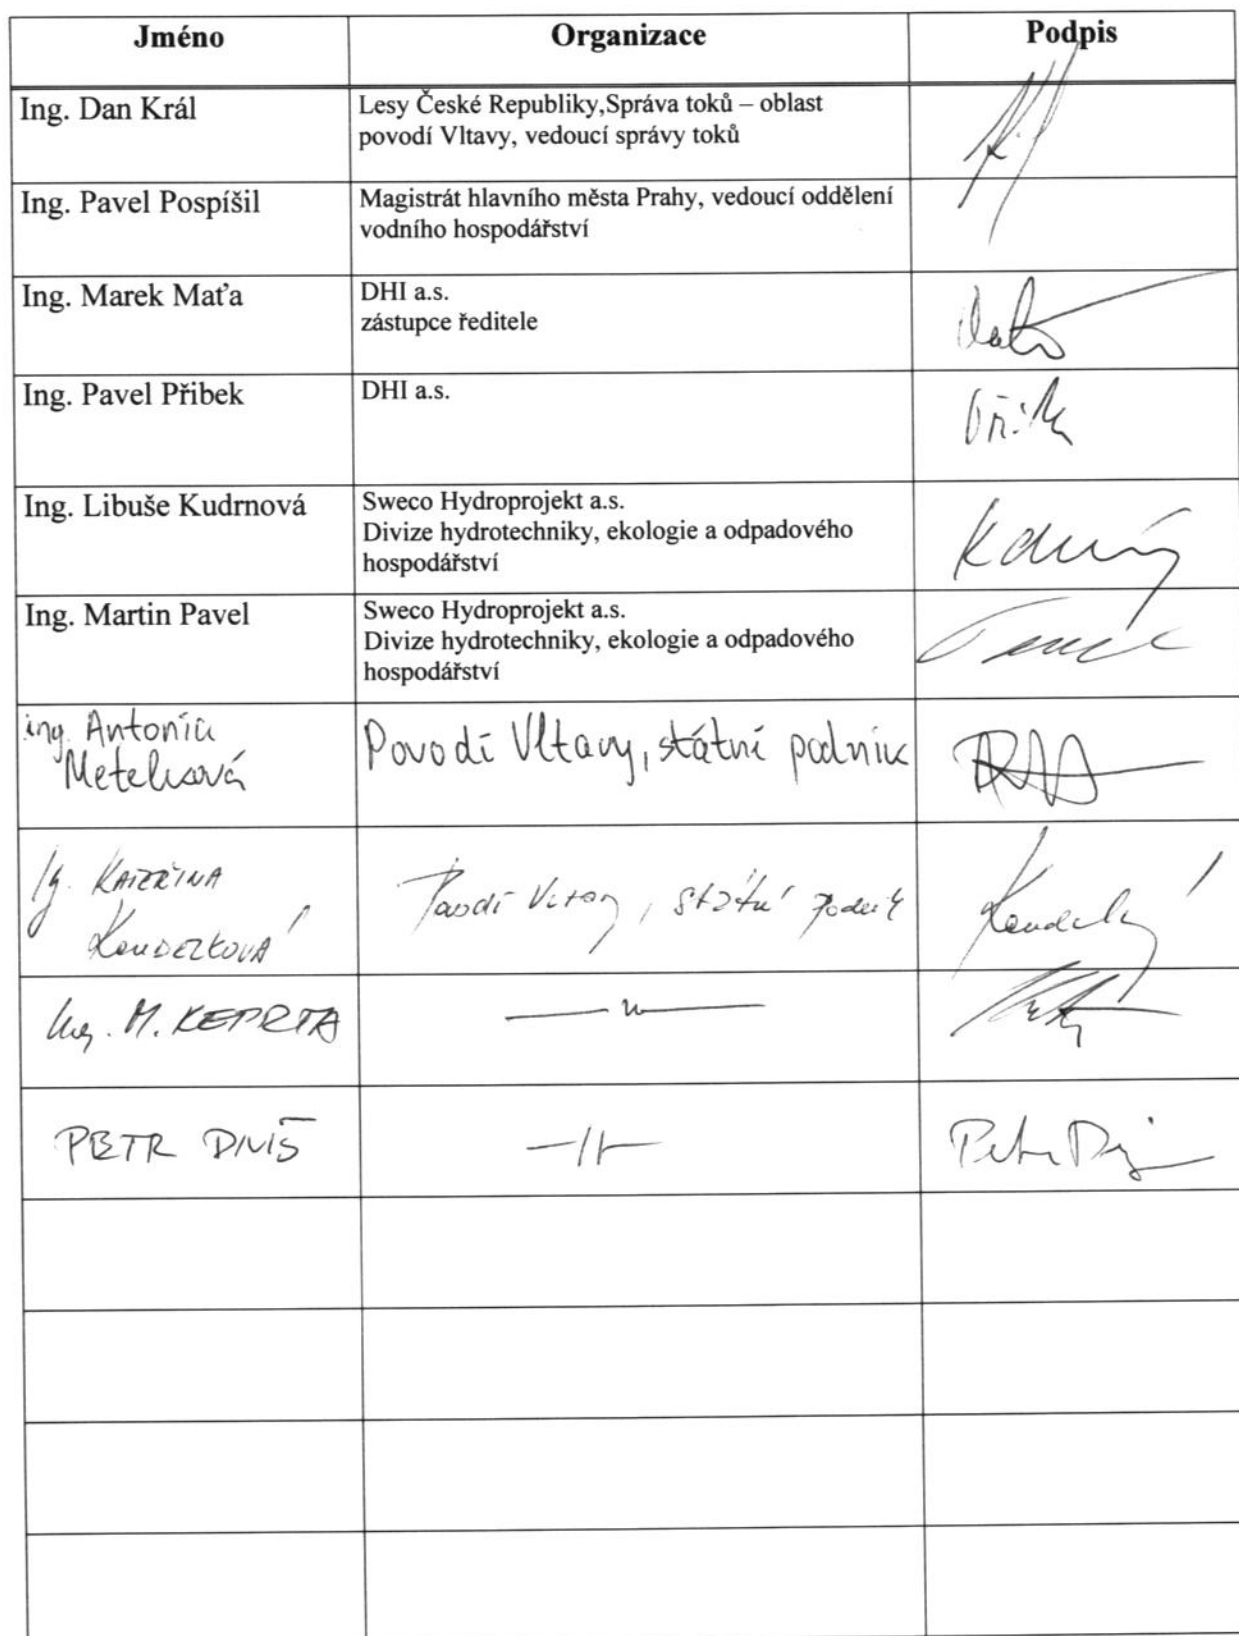 Jméno
Organizace
Podpis
Ing. Dan Král
Lesy České Republiky,Správa toků – oblast
povodí Vltavy, vedoucí správy toků
Ing. Pavel Pospíšil
Magistrát hlavního města Prahy, vedoucí oddělení
vodního hospodářství
Ing. Marek Maťa
DHI a.s.
zástupce ředitele
Ing. Pavel Přibek
DHI a.s.
Ing. Libuše Kudrnová
Sweco Hydroprojekt a.s.
Divize hydrotechniky, ekologie a odpadového
hospodářství
Ing. Martin Pavel
Sweco Hydroprojekt a.s.
Divize hydrotechniky, ekologie a odpadového
hospodářství
ing. Antonia
Metelková
Povodí Vltavy, státní podnik
Ing. KATEŘINA
KOUDELKOVÁ
Povodí Vltavy, státní podnik
Ing. M. KEPRTA
PETR DIVIŠ